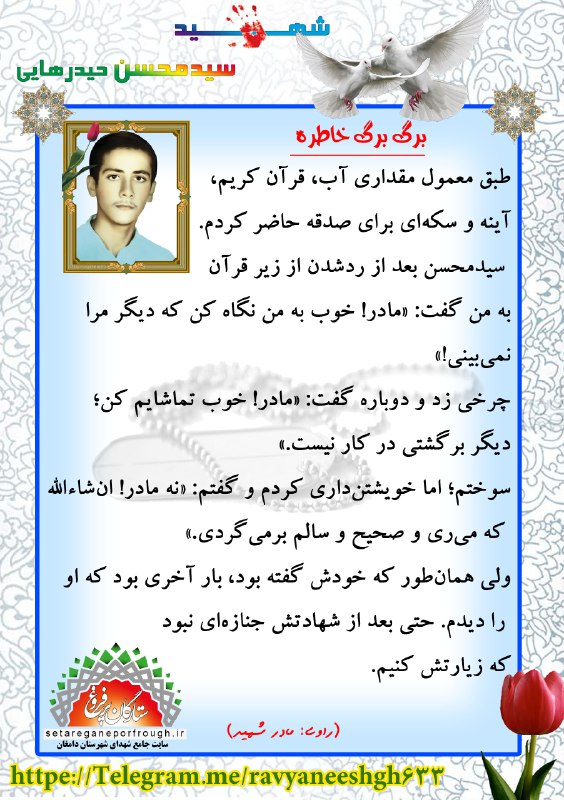 شهید
سیدمحسن حیدرهایی
برگ برگ خاطره
طبق معمول مقداری آب، قرآن کریم،
آینه و سکه‌ای برای صدقه حاضر کردم.
سیدمحسن بعد از ردشدن از زیر قرآن
به من گفت: «مادر! خوب به من نگاه کن که دیگر مرا
نمی‌بینی!»
چرخی زد و دوباره گفت: «مادر! خوب تماشایم کن؛
دیگر برگشتی در کار نیست.»
سوختم؛ اما خویشتن‌داری کردم و گفتم: «نه مادر! ان‌شاءالله
که می‌ری و صحیح و سالم برمی‌گردی.»
ولی همان‌طور که خودش گفته بود، بار آخری بود که او
را دیدم. حتی بعد از شهادتش جنازه‌ای نبود
که زیارتش کنیم.
(راوی: مادر شهید)
ستارگان پرفروغ
setareganeporfrough.ir
سایت جامع شهدای شهرستان دامغان
https://Telegram.me/ravyaneeshgh۶۳۳